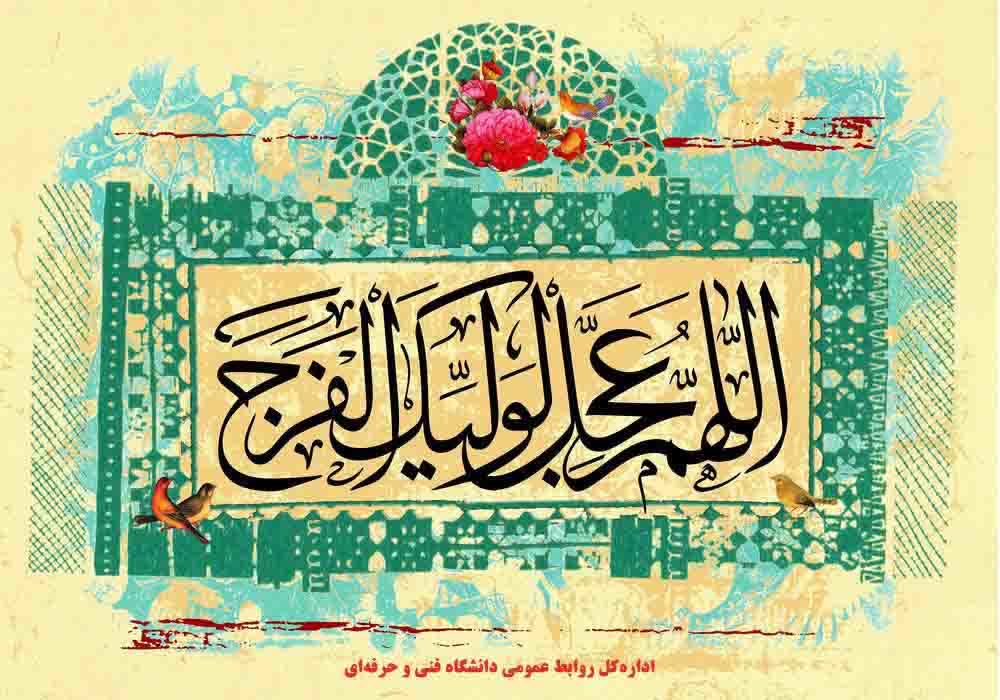 اللّهُمَّ عَجِّل لِوَلِیِّکَ الْفَرَجَ
اداره‌کل روابط عمومی دانشگاه فنی و حرفه‌ای